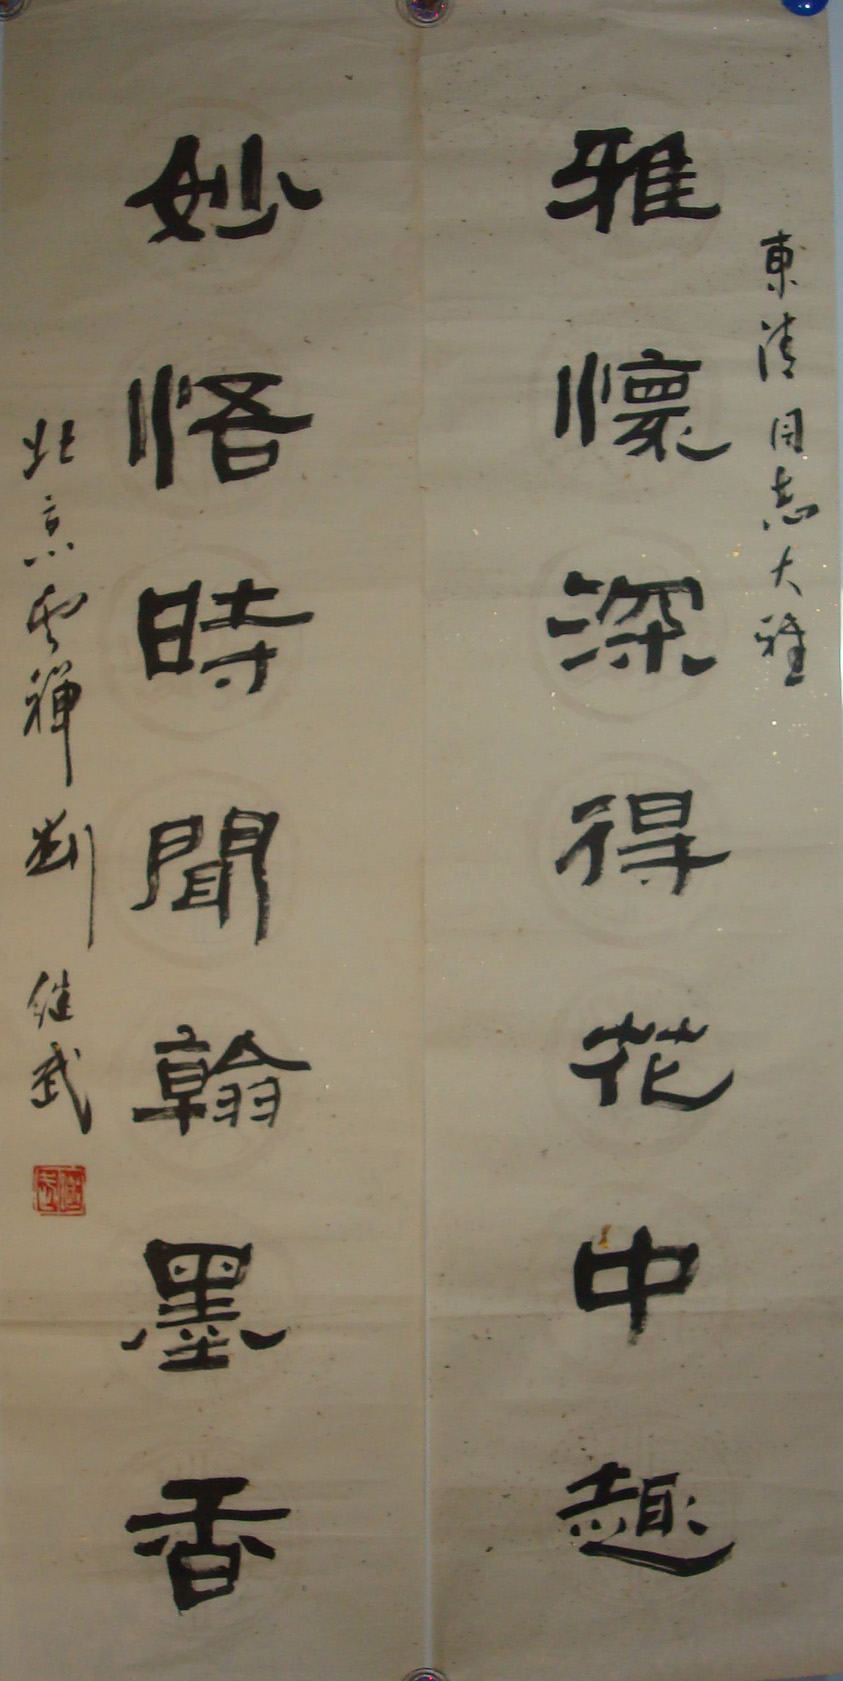 東清同志大雅
雅懷深得花中趣
妙悟時聞翰墨香
北京雲禪劉继武